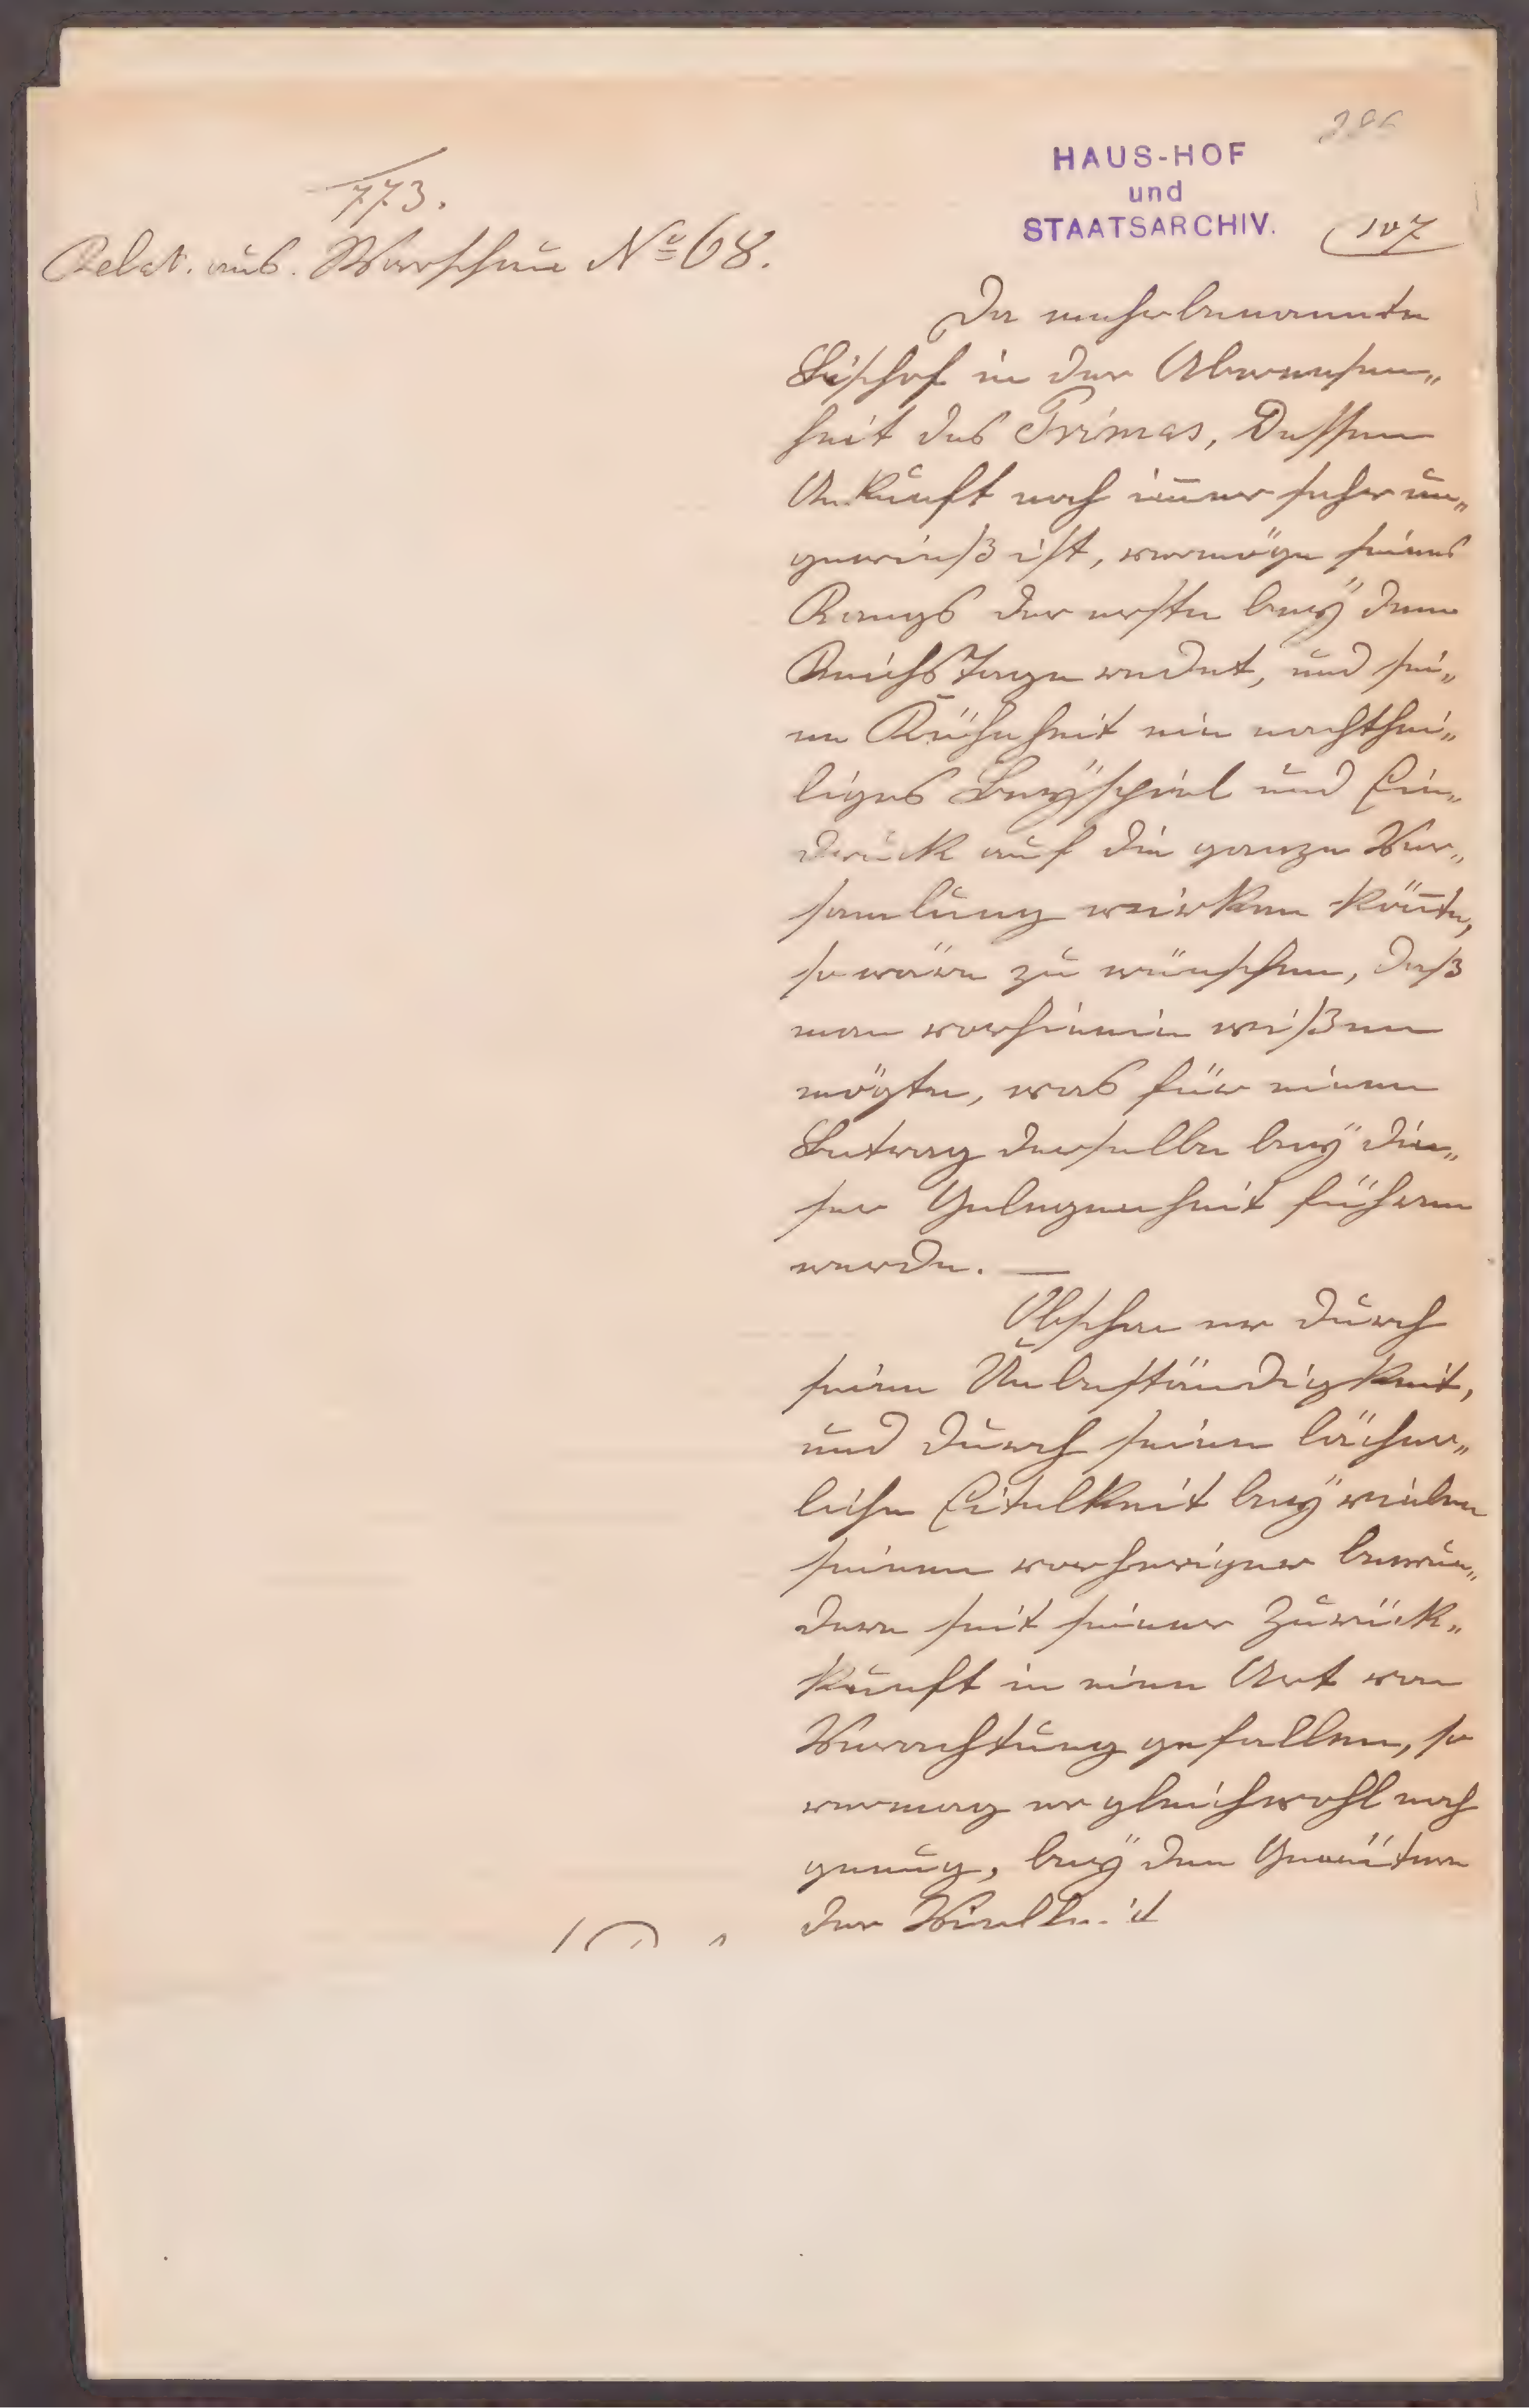 HAUS-HOF
und
STAATSARCHIV.
107
773.
Relat. aus. Warschau No 68.
Da mehrbenannte
Bischof in der Abwesen„
heit des Primas, Dessen
Ankunft noch im̄er seher un„
gewieß ist, vermöge seines
Rangs der erste beÿ dem
ReichsTage redet, und sei„
ne Kühnheit ein nachthei„
liges Beÿspiel und Ein„
druck auf die ganze Ver„
samlung wirken kön̄te,
so wäre zu wünschen, daß
man vorhinein wißen
mögte, was für einen
Betrag derselbe beÿ die„
ser Gelegenheit führen
werde. —
Obschon er durch
seine Unbeständigkeit,
und durch seine lächer„
liche Eitelkeit beÿ vielen
seinen vorheriger bewun„
dern seit seiner Zurück„
kunft in eine Art von
Verachtung gefallen, so
vermag er gleichwohl noch
genug, beÿ den Gemütern
der